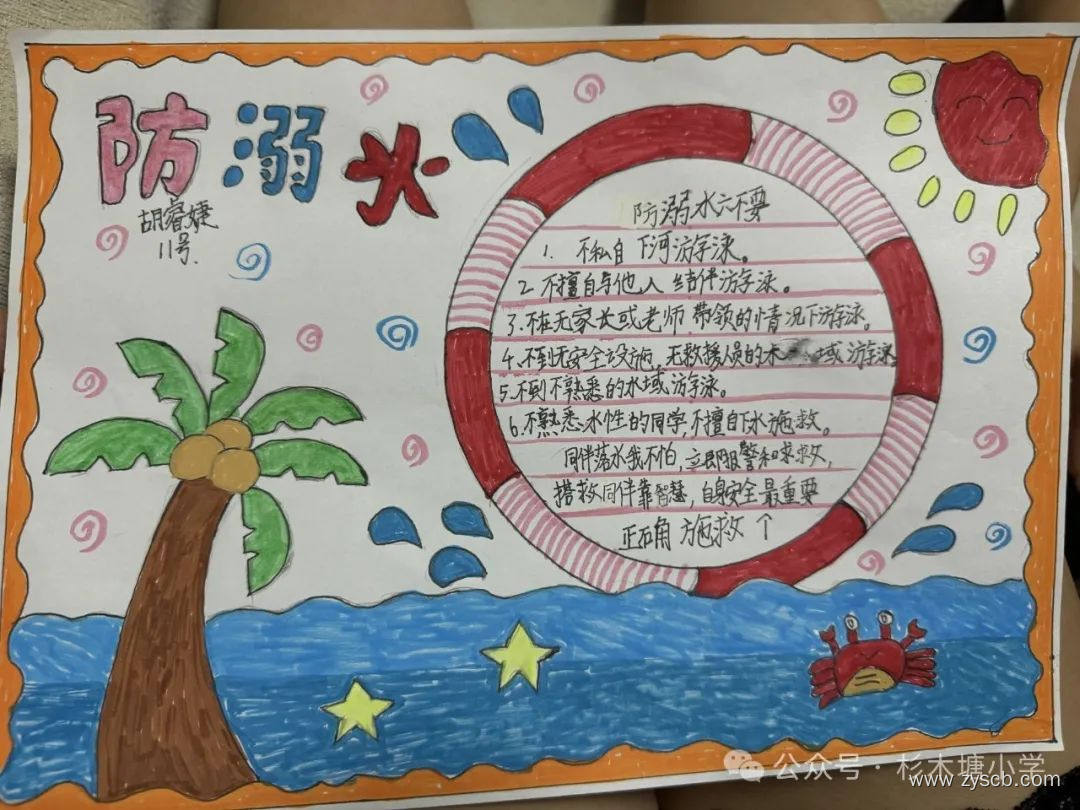 防溺水
胡睿婕
11号.
防溺水六不要
1. 不私自下河游泳。
2.不擅自与他人结伴游泳。
3.不在无家长或老师带领的情况下游泳。
4.不到无安全设施,无救援人员的水域游泳
5.不到不熟悉的水域游泳。
6.不熟悉水性的同学,不擅自下水施救。
同伴落水我不怕,立即报警和求救,
搭救同伴靠智慧,自身安全最重要
正石角 施救个
公众号·杉木塘小学
www.zyscb.com